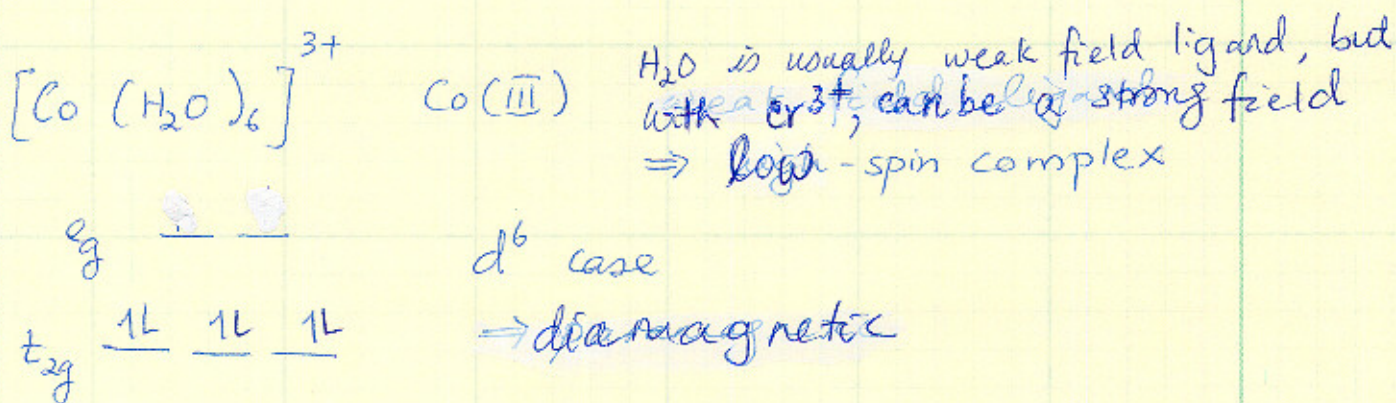 [Co (H₂O)₆]³⁺ Co(III) H₂O is usually weak field ligand, but
with cr³⁺, can be a strong field
⇒ low-spin complex
eg __ __ d⁶ case
t₂g 1L 1L 1L ⇒ diamagnetic